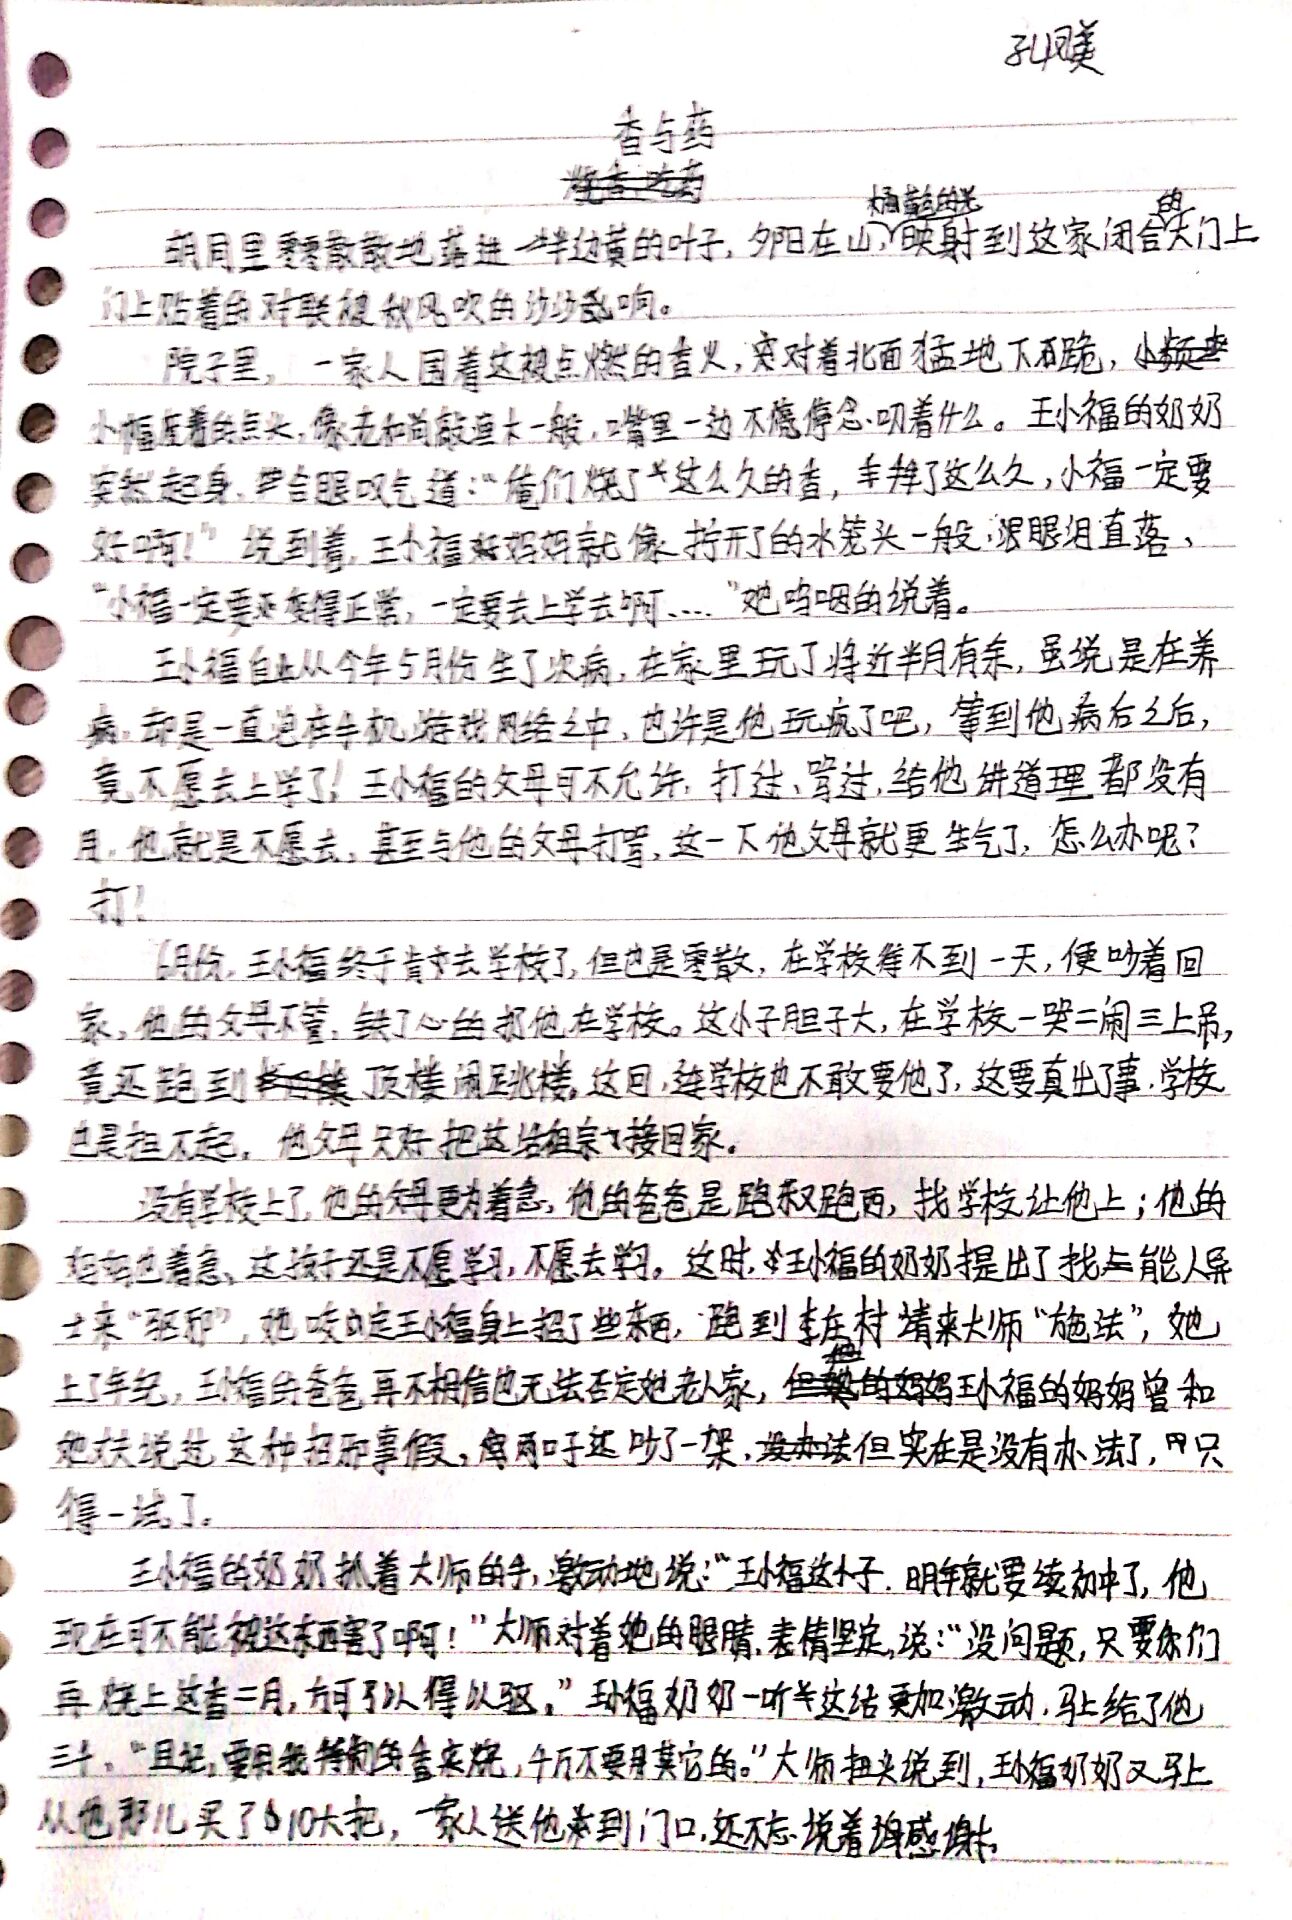 孔凤美
香与药
胡同里零零散散地落进一半边黄的叶子，夕阳在山，橘黄色的光映射到这家闭合的大门上
门上贴着的对联被秋风吹的沙沙乱响。
院子里，一家人围着这被点燃的香火，突对着北面猛地下跪，
小福在着的点头，像老和尚敲逗木一般，嘴里一边不停停念叨着什么。王小福的奶奶
突然起身，合眼叹气道：“俺们烧了这么久的香，拜了这么久，小福一定要
好啊！”说到着，王小福妈妈就像拧开了的水笼头一般，眼泪直落、
“小福一定要变得正常，一定要去上学去啊....”她呜咽的说着。
王小福自从今年5月份生了次病，在家里玩了将近半月有余，虽说是在养
病，却是一直泡在手机游戏网络之中，也许是他玩疯了吧，等到他病右之后，
竟不愿去上学了！王小福的父母可不允许，打过、骂过，给他讲道理都没有
用，他就是不愿去，甚至与他的父母打骂，这一下他父母就更生气了，怎么办呢？
打！
6月份，王小福终于肯去学校了，但也是零散，在学校等不到一天，便吵着回
家，他的父母不管，铁了心的扔他在学校。这小子胆子大，在学校一哭二闹三上吊，
竟还跑到顶楼闹跳楼。这回，连学校也不敢要他了，这要真出了事，学校
也是担不起，他父母只好把这活祖宗接回家。
没有学校上了，他的父母更为着急，他的爸爸是跑东又跑西，找学校让他上；他的
妈妈也着急，这孩子还是不愿学习，不愿去学习。这时，王小福的奶奶提出了找能人异
士来“驱邪”，她咬定王小福身上招了些东西，跑到李庄村请来大师“施法”，她
上了年纪，王小福的爸爸再不相信也无法否定她老人家，王小福的妈妈曾和
她丈夫说过这种招邪事假，两口子还吵了一架，但实在是没有办法了，只
得一试了。
王小福的奶奶抓着大师的手，激动地说：“王小福这小子，明年就要读初中了，他
现在可不能被这东西害了啊！”大师对着她的眼睛，表情坚定，说：“没问题，只要你们
再烧上这香二月，方可以得以驱。”王小福奶奶一听这话更加激动，马上给了他
三千，“且记，要用我特制的香来烧，千万不要用其它的。”大师扭头说到，王小福奶奶又马上
从他那儿买了10大把，一家人送他来到门口，还不忘说着谢感谢。